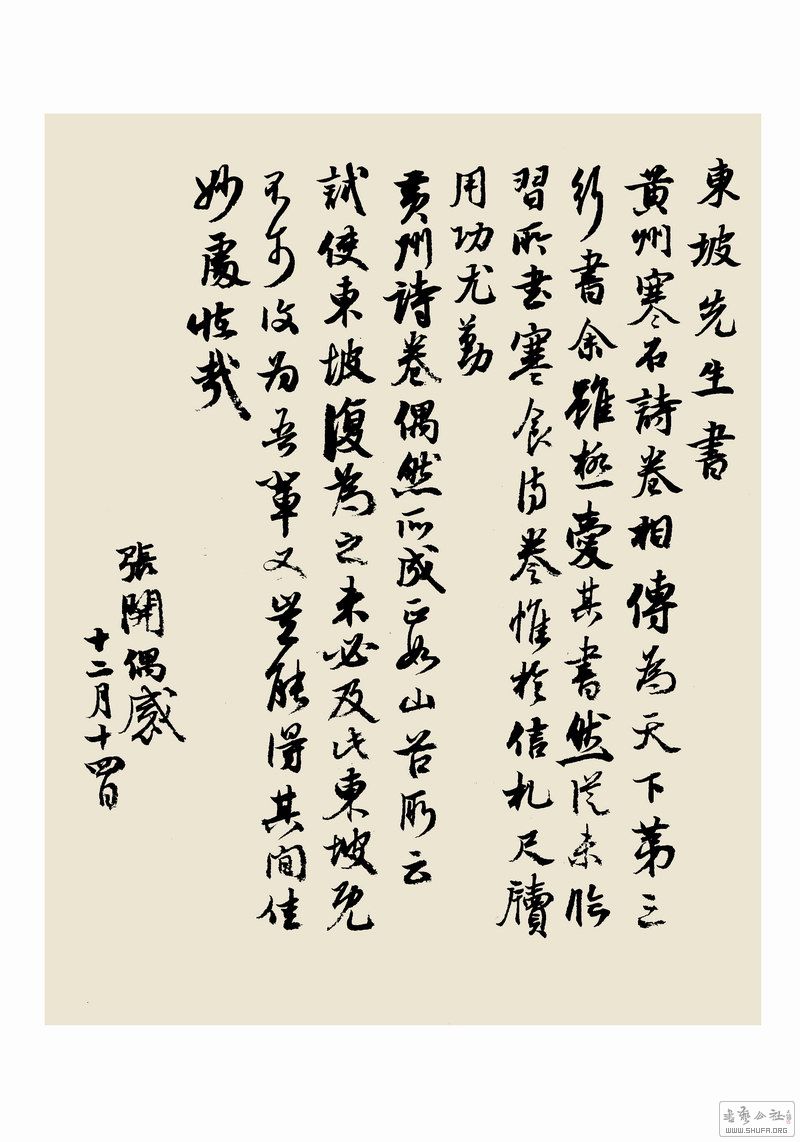 東坡先生書
黃州寒石詩卷相傳為天下第三
行書余雖極愛其書然從未臨
習所書寒食詩卷惟於信札尺牘
用功尤勤
黃州詩卷偶然所成正如山谷所云
試使東坡復為之未必及此東坡既
不可復為吾輩又豈能得其間佳
妙處恠哉
張開偶感
十二月十四日
書藝公社
WWW.SHUFA.ORG